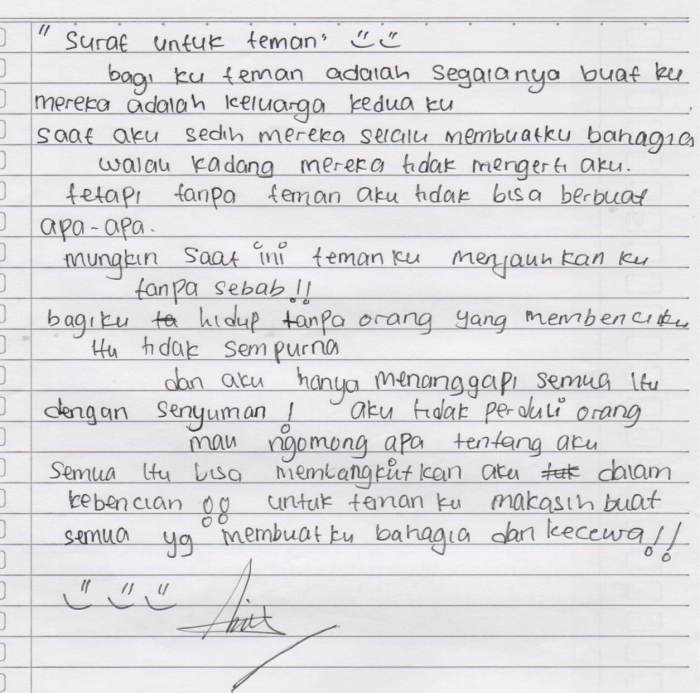 " Surat untuk teman"
bagi ku teman adalah Segalanya buat ku
mereka adalah keluarga kedua ku
saat aku sedih mereka selalu membuatku bahagia
walau kadang mereka tidak mengerti aku.
tetapi tanpa teman aku tidak bisa berbuat
apa-apa.
mungkin saat ini teman ku menjauhkan ku
tanpa sebab!!
bagiku hidup tanpa orang yang membenciku
itu tidak sempurna
dan aku hanya menanggapi semua itu
dengan senyuman! aku tidak perduli orang
mau ngomong apa tentang aku
Semua itu bisa membangkitkan aku dalam
kebencian !! untuk teman ku makasih buat
semua yg membuatku bahagia dan kecewa!!